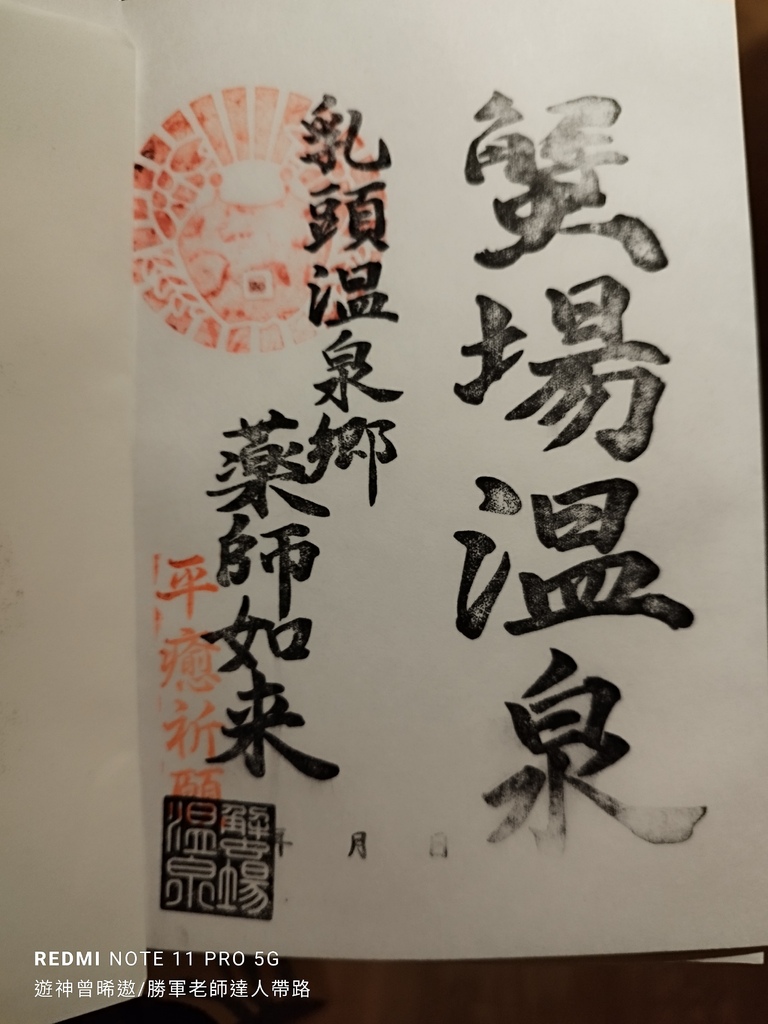 蟹場温泉
乳頭温泉郷
薬師如来
平癒祈願
蟹場温泉
年 月 日
REDMI NOTE 11 PRO 5G
遊神曾晞遨/勝軍老師達人帶路